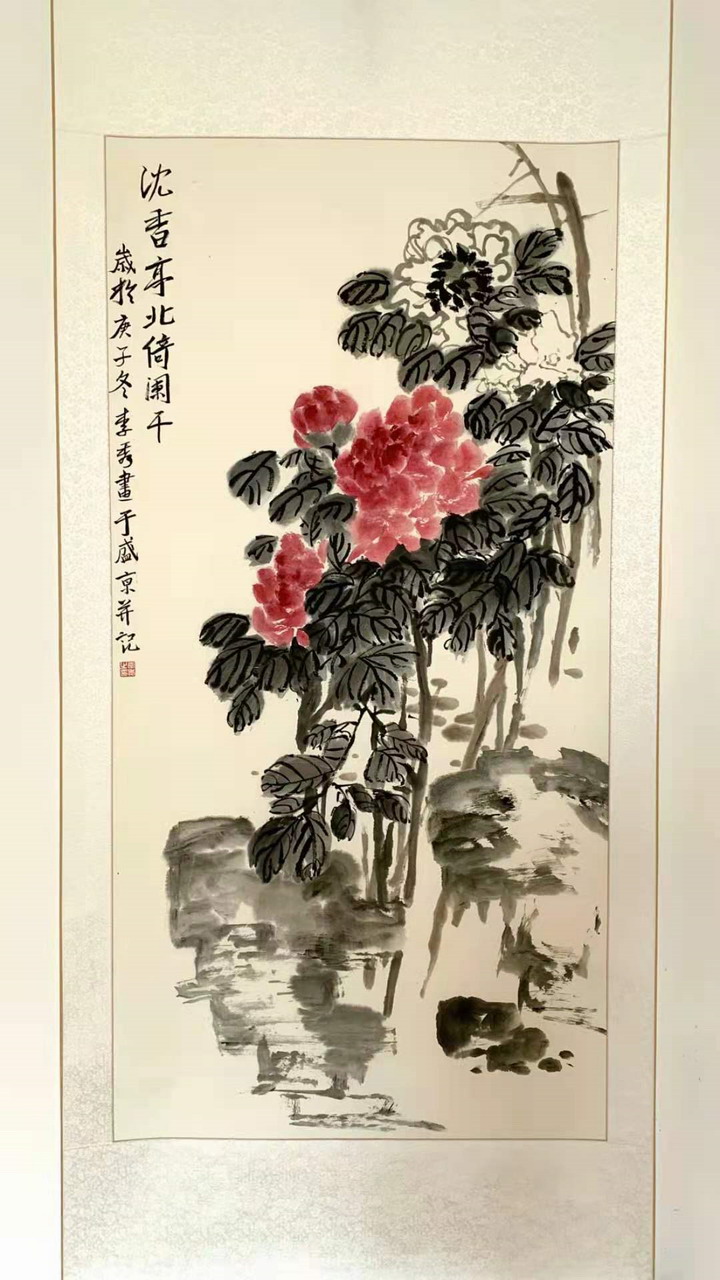 沈香亭北倚阑干
岁於庚子冬李秀畫于盛京并記